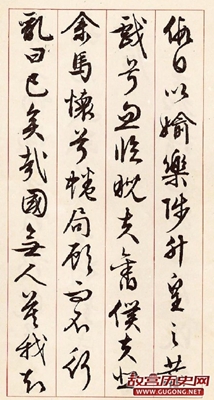 假日以媮樂陟升皇之赫
戲兮忽臨睨夫舊僕夫悲
余馬懷兮蜷局顧而不行
亂曰已矣哉國無人莫我知
故宫历史网